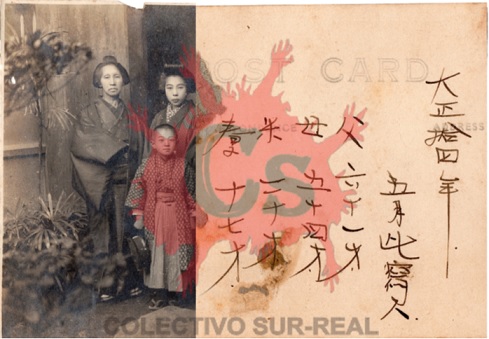 POST CARD
ADDRESS
大正拾四年
五月此寫
父 才
母 五十四才
米 二十才
十七才
Cs
COLECTIVO SUR-REAL